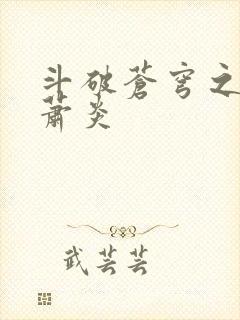 斗破苍穹之
萧炎
武芸芸